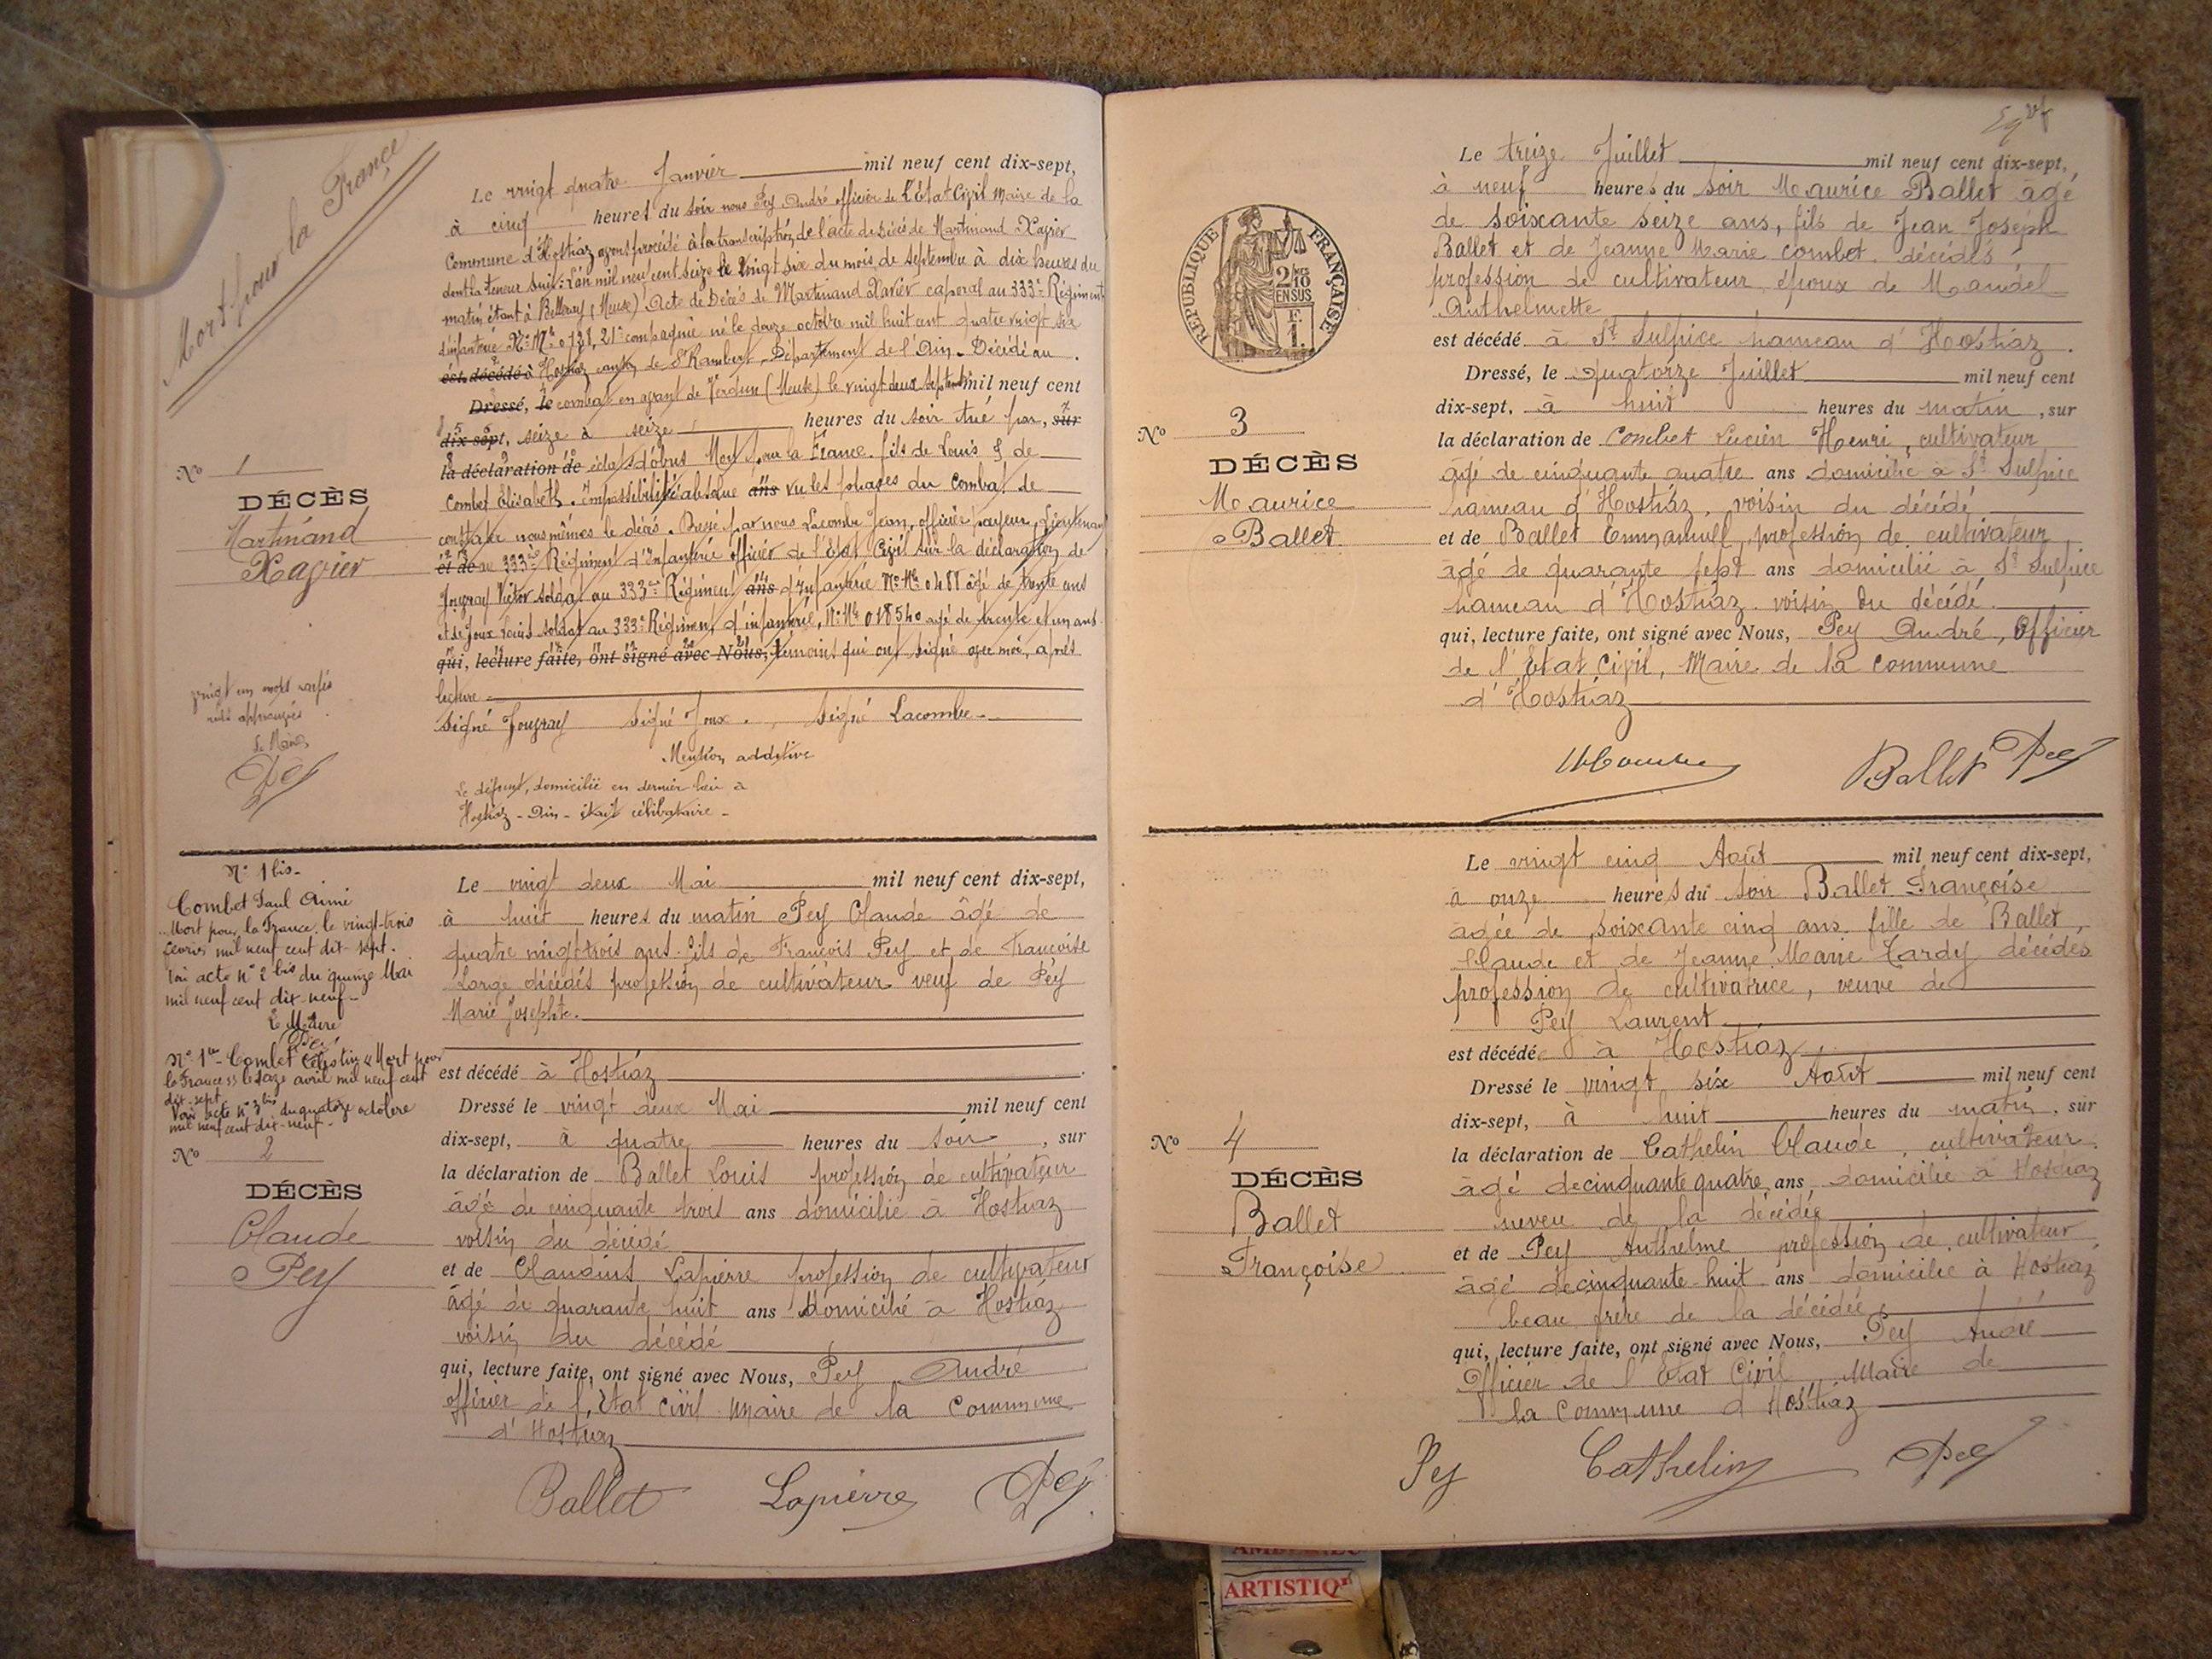 Mort pour la France
Le vingt quatre Janvier mil neuf cent dix-sept,
à cinq heures du soir nous Pey André officier de l'Etat Civil Maire de la
Commune d'Hostiaz avons procédé à la transcription de l'acte de décès de Martinand Xavier
dont la teneur suit: L'an mil neuf cent seize le vingt six du mois de septembre à dix heures du
matin étant à Belleray (Meuse) Acte de Décès de Martinand Xavier caporal au 333e Régiment
d'infanterie No Mle 0721, 21e compagnie né le douze octobre mil huit cent quatre vingt six
est décédé à Hostiaz canton de St Rambert, Département de l'Ain. Décédé au
Dressé, le combat en avant de Verdun (Meuse) le vingt deux septembre mil neuf cent
dix-sept, seize à seize heures du soir tué par, sur
la déclaration de éclats d'obus Mort pour la France. fils de Louis & de
Combet Elisabeth. Impossibilité absolue ans vu les phases du combat de
constater nous mêmes le décès. Dressé par nous Lacombe Jean, officier payeur, Lieutenant
et de au 333e Régiment d'Infanterie officier de l'Etat Civil sur la déclaration de
Victor soldat au 333e Régiment ans d'Infanterie No Mle âgé de trente ans
et de Joux Louis soldat au 333e Régiment d'infanterie, No Mle 018540 agé de trente et un ans
qui, lecture faite, ont signé avec Nous, témoins qui ont signé avec moi, après
lecture
Signé Signé Joux. Signé Lacombe
Mention additive
Le défunt, domicilié en dernier lieu à
Hostiaz - Ain - était célibataire -
No 1
DÉCÈS
Martinand
Xavier
vingt un mots rayés
nuls approuvés
Le Maire
Pey
No 1 bis -
Combet Paul Aimé
Mort pour la France, le vingt-trois
mil neuf cent dix-sept.
Voir acte No 2 bis du quinze Mai
mil neuf cent dix-neuf -
Le Maire
Pey
No 1 ter - Combet Célestin "Mort pour
la France" le seize avril mil neuf cent
dix-sept
Voir acte No 3 bis du quatorze octobre
mil neuf cent dix-neuf -
No 2
DÉCÈS
Claude
Pey
Le vingt deux Mai mil neuf cent dix-sept,
à huit heures du matin Pey Claude âgé de
quatre vingt trois ans. fils de François Pey et de Françoise
Lorge décédés profession de cultivateur veuf de Pey
Marie Josephte.
est décédé à Hostiaz
Dressé le vingt deux Mai mil neuf cent
dix-sept, à quatre heures du soir, sur
la déclaration de Ballet Louis profession de cultivateur
âgé de cinquante trois ans domicilié à Hostiaz
voisin du décédé
et de Claudius Lapierre profession de cultivateur
âgé de quarante huit ans domicilié à Hostiaz
voisin du décédé
qui, lecture faite, ont signé avec Nous, Pey André
officier de l'Etat Civil Maire de la Commune
d'Hostiaz
Ballet Lapierre Pey
RÉPUBLIQUE FRANÇAISE
2/10 EN SUS
F. 1.
Le treize Juillet mil neuf cent dix-sept,
à neuf heures du soir Maurice Ballet agé
de soixante seize ans, fils de Jean Joseph
Ballet et de Jeanne Marie Combet décédés
profession de cultivateur époux de Mandel
Anthelmette
est décédé à St Sulpice hameau d'Hostiaz.
Dressé, le quatorze Juillet mil neuf cent
dix-sept, à huit heures du matin, sur
la déclaration de Combet Lucien Henri, cultivateur
âgé de cinquante quatre ans domicilié à St Sulpice
hameau d'Hostiaz, voisin du décédé
et de Ballet Emmanuel, profession de cultivateur
âgé de quarante sept ans domicilié à St Sulpice
hameau d'Hostiaz. voisin du décédé.
qui, lecture faite, ont signé avec Nous, Pey André, Officier
de l'Etat Civil, Maire de la commune
d'Hostiaz
Ballet Pey
No 3
DÉCÈS
Maurice
Ballet
Le vingt cinq Août mil neuf cent dix-sept,
à onze heures du soir Ballet Françoise
agée de soixante cinq ans. fille de Ballet
Claude et de Jeanne Marie Tardy décédés
profession de cultivatrice, veuve de
Pey Laurent
est décédée à Hostiaz
Dressé le vingt six Août mil neuf cent
dix-sept, à huit heures du matin, sur
la déclaration de Cathelin Claude, cultivateur
âgé de cinquante quatre ans domicilié à Hostiaz
neveu de la décédée
et de Pey Anthelme profession de cultivateur
âgé de cinquante-huit ans domicilié à Hostiaz
beau frère de la décédée
qui, lecture faite, ont signé avec Nous, Pey André
Officier de l'Etat Civil Maire de
la Commune d'Hostiaz
Pey Cathelin Pey
No 4
DÉCÈS
Ballet
Françoise
ARTISTIQ